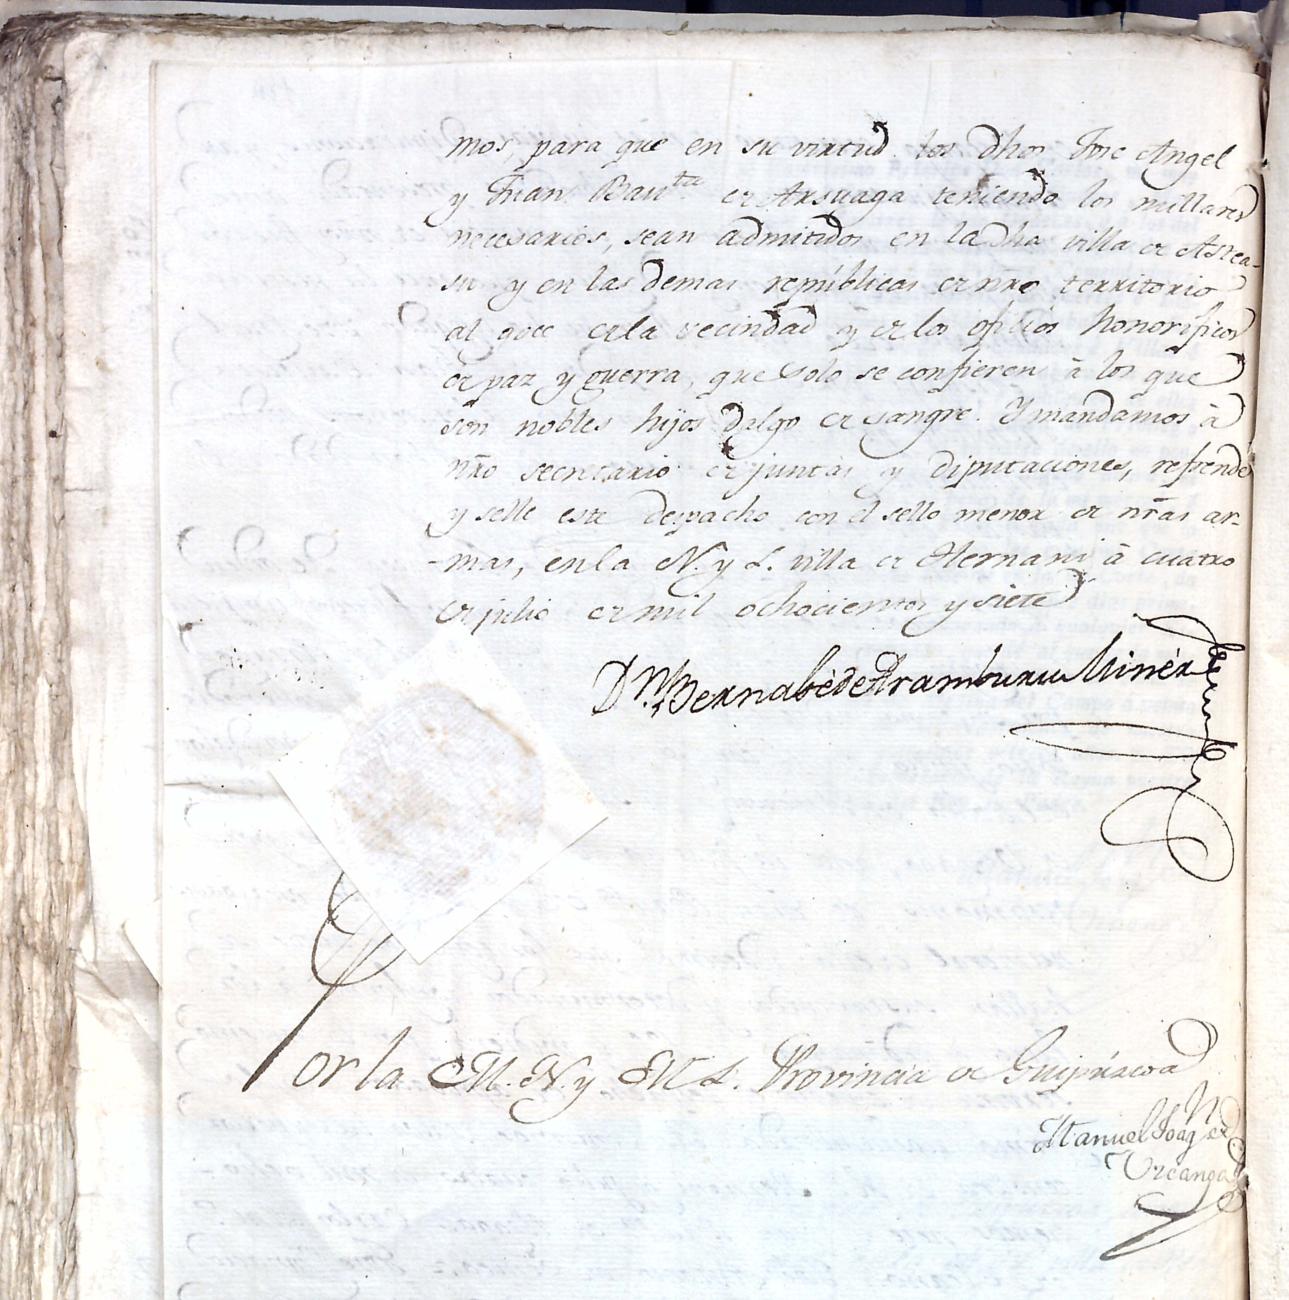 mos, para que en su virtud los dhos Jose Angel
y Juan Bauta. de Arsuaga teniendo los millares
necesarios, sean admitidos en la dha villa de Astea-
su y en las demas repúblicas de nro territorio
al goce de la vecindad y de los oficios honorificos
de paz y guerra, que solo se confieren à los que
son nobles hijos dalgo de sangre. Y mandamos à
nro secretario de juntas y diputaciones, refrende
y selle este despacho con el sello menor de nras ar-
-mas, en la N. y L. villa de Hernani à cuatro
de julio de mil ochocientos y siete
Dn. Bernabè de Aramburu Minèr
Por la M. N. y M. L. Provincia de Guipúzcoa
Manuel Joaqn de
Uzcanga